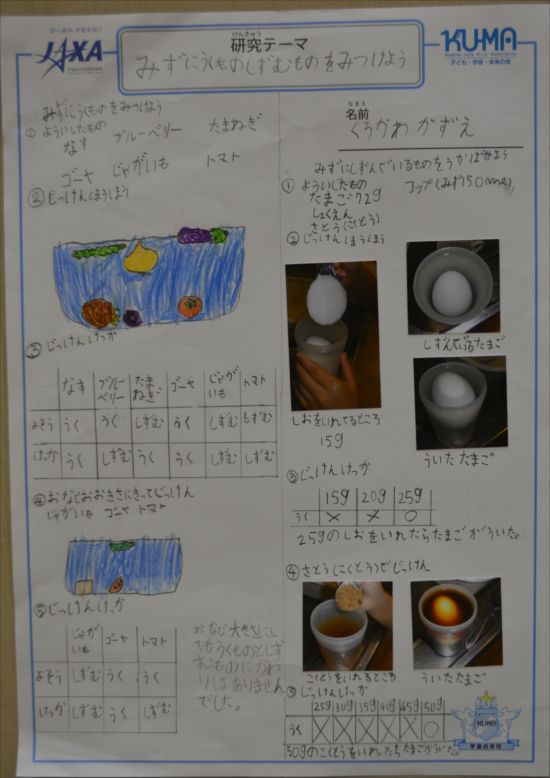 JAXA
けんきゅう
研究テーマ
みずにうくものしずむものをみつけよう
KU-MA
子ども・宇宙・未来の会
みずにうくものをみつけよう
① よういしたもの
なす ブルーベリー たまねぎ
ゴーヤ じゃがいも トマト
② じっけんほうほう
③ じっけんけっか
なす ブルーベリー たまねぎ ゴーヤ じゃがいも トマト
よそう うく うく しずむ うく しずむ しずむ
けっか うく しずむ うく うく しずむ しずむ
④ おなじおおきさにきってじっけん
じゃがいも ゴーヤ トマト
⑤ じっけんけっか
じゃがいも ゴーヤ トマト
よそう しずむ うく うく
けっか しずむ うく しずむ
おなじ大きさにし
てもうくものとしず
むものにかわ
りはありません
でした。
なまえ
名前
くろかわ かずえ
みずにしずんでいるものをうかばせよう
① よういしたもの コップ(みず150ml)
たまご72g
しょくえん
さとう(こくとう)
② じっけんほうほう
しずんでいるたまご
しおをいれてるところ
15g
ういたたまご
③ じっけんけっか
15g 20g 25g
うく × × ○
25gのしおをいれたらたまごがういた。
④ さとう(こくとう)でじっけん
こくとうをいれるところ
ういたたまご
⑤ じっけんけっか
25g 30g 35g 40g 45g 50g
うく × × × × × ○
50gのこくとうをいれたらたまごがういた。
KU-MA
宇宙の学校